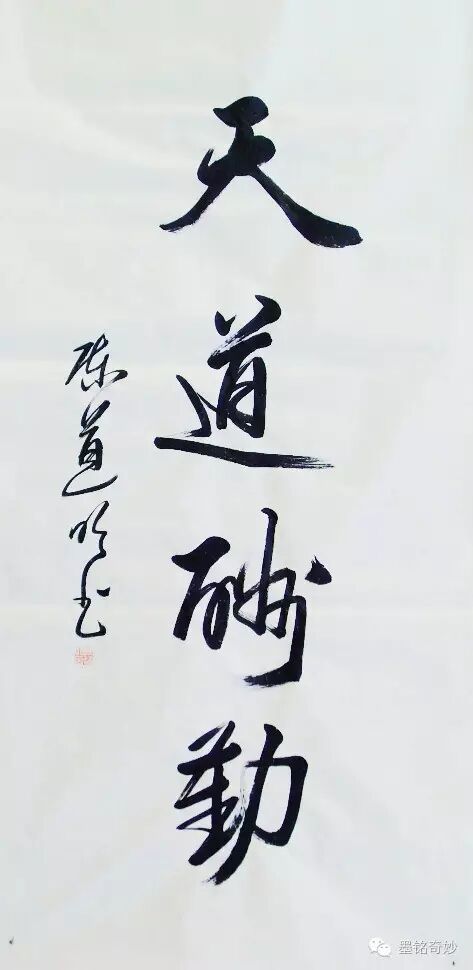 天道酬勤
陈道明书
墨铭奇妙